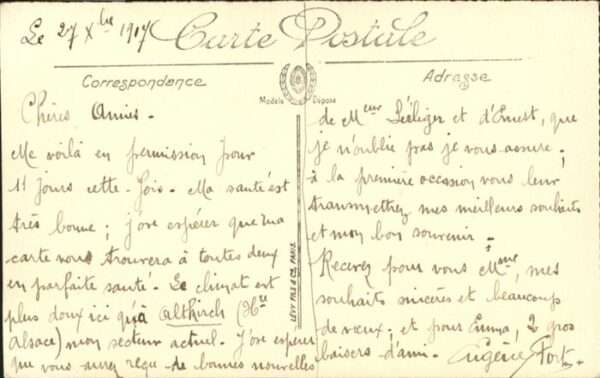 Le 27 Xbre 1917
Carte Postale
Correspondance
Adresse
Modèle Déposé
LÉVY FILS & Cie, PARIS
Chères Amies -
Me voilà en permission pour
11 jours cette - fois - Ma santé est
très bonne ; j'ose espérer que ma
carte vous trouvera à toutes deux
en parfaite santé. Le climat est
plus doux ici qu'à Altkirch (Hte
Alsace) mon secteur actuel. J'ose espérer
que vous avez reçu de bonnes nouvelles
de Meur et d'Ernest, que
je n'oublie pas je vous assure ;
à la première occasion vous leur
transmettrez mes meilleurs souhaits
et mon bon souvenir.
Recevez pour vous Mme, mes
souhaits sincères et beaucoup
de vœux ; et pour Emma, 2 gros
baisers d'ami. Eugène Port